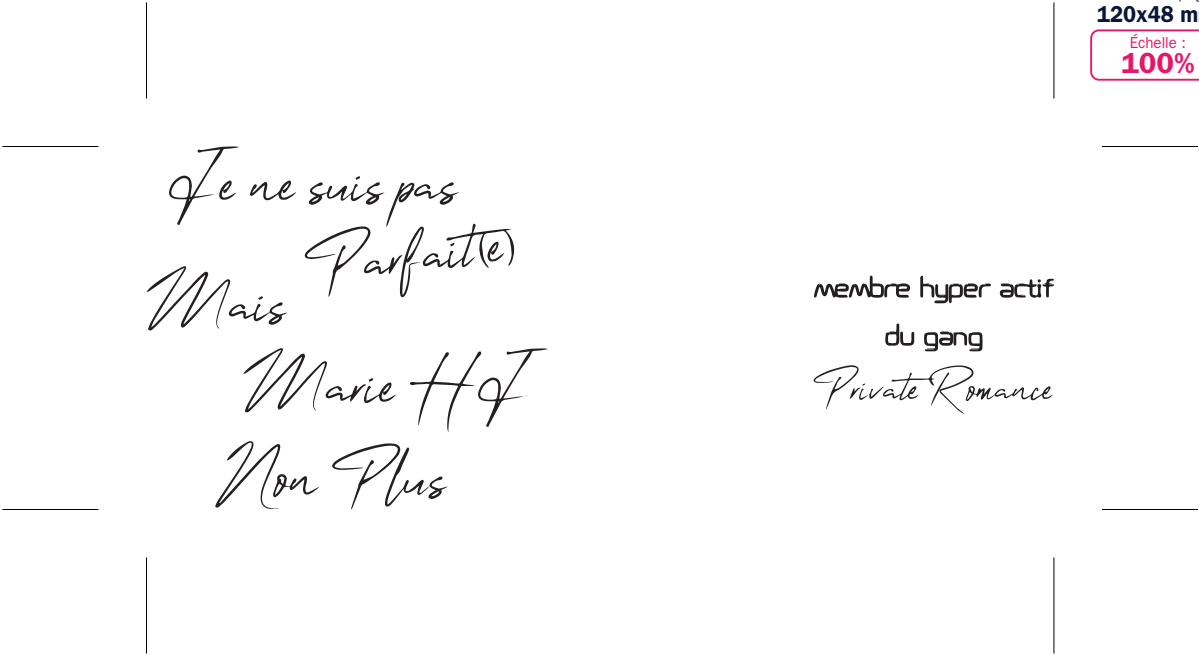 120x48 m
Échelle :
100%
Je ne suis pas
Parfait(e)
Mais
Marie HJ
Non Plus
membre hyper actif
du gang
Private Romance